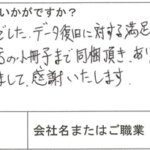 いかがですか?
でした。データ復旧に対する満足
の小冊子まで同梱頂き、あり
まして、感謝いたします。
会社名またはご職業